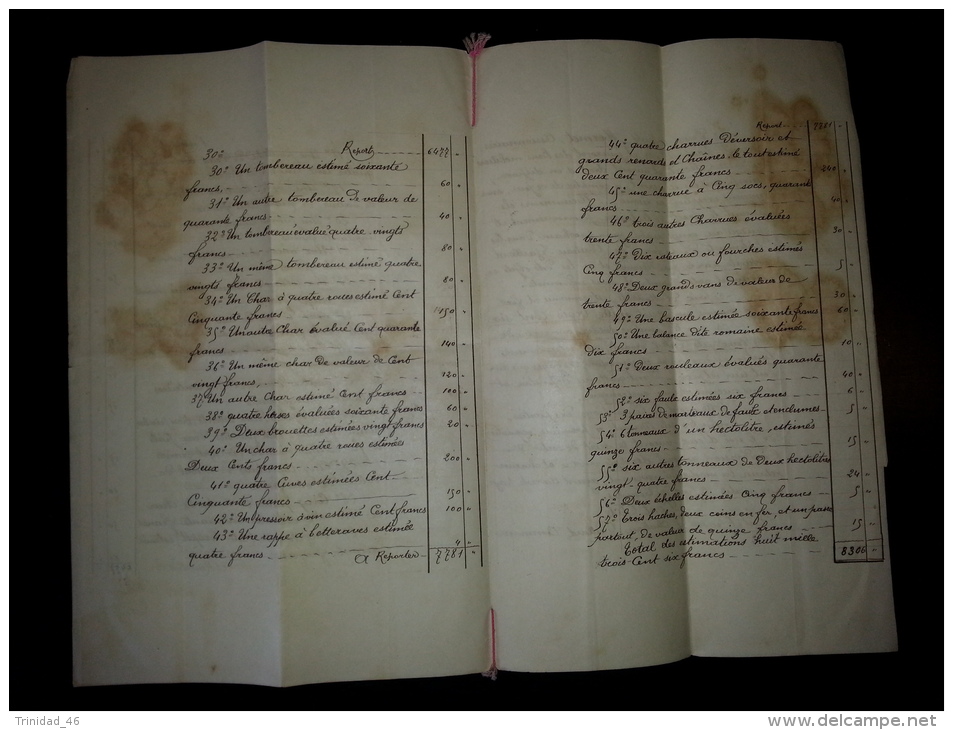 30° Report 6477 "
30° Un tombereau estimé soixante
francs, 60 "
31° Un autre tombereau de valeur de
quarante francs. 40 "
32° Un tombereau évalué quatre vingts
francs 80 "
33° Un même tombereau estimé quatre
vingts francs 80 "
34° Un Char à quatre roues estimé Cent
Cinquante francs 150 "
35° Un autre Char évalué Cent quarante
francs 140 "
36° Un même char de valeur de Cent
vingt francs, 120 "
37 Un autre Char estimé Cent francs 100 "
38° quatre herses évaluées soixante francs 60 "
39° Deux brouettes estimées vingt francs 20 "
40° Un char à quatre roues estimés
Deux Cents francs 200 "
41° quatre Cuves estimées Cent
Cinquante francs 150 "
42° Un pressoir à vin estimé Cent francs 100 "
43° Une rappe à betteraves estimée
quatre francs 4 "
A Reporter 7781 "
Report 7781 "
44° quatre charrues Déversoir et
grands renards et Chaînes, le tout estimé
deux Cent quarante francs 240 "
45° une charrue à Cinq socs, quarant
francs 40 "
46° trois autres Charrues évaluées
trente francs 30 "
47° Dix rateaux ou fourches estimés
Cinq francs 5 "
48° Deux grands vans de valeur de
trente francs 30 "
49° Une bascule estimée soixante francs 60 "
50° Une balance dite romaine estimée
dix francs 10 "
51° Deux rouleaux évalués quarante
francs 40 "
52° six faulx estimées six francs 6 "
53° 3 paires de marteaux de faulx et enclumes 5 "
54° 6 tonneaux d'un hectolitre, estimés
quinze francs 15 "
55° six autres tonneaux de Deux hectolitres
vingt-quatre francs 24 "
56° Deux échelles estimées Cinq francs 5 "
57° Trois haches, deux coins en fer, et un passe
partout, de valeur de quinze francs 15 "
Total des estimations huit mille
trois Cent six francs 8306 "
Trinidad_46
www.delcampe.net